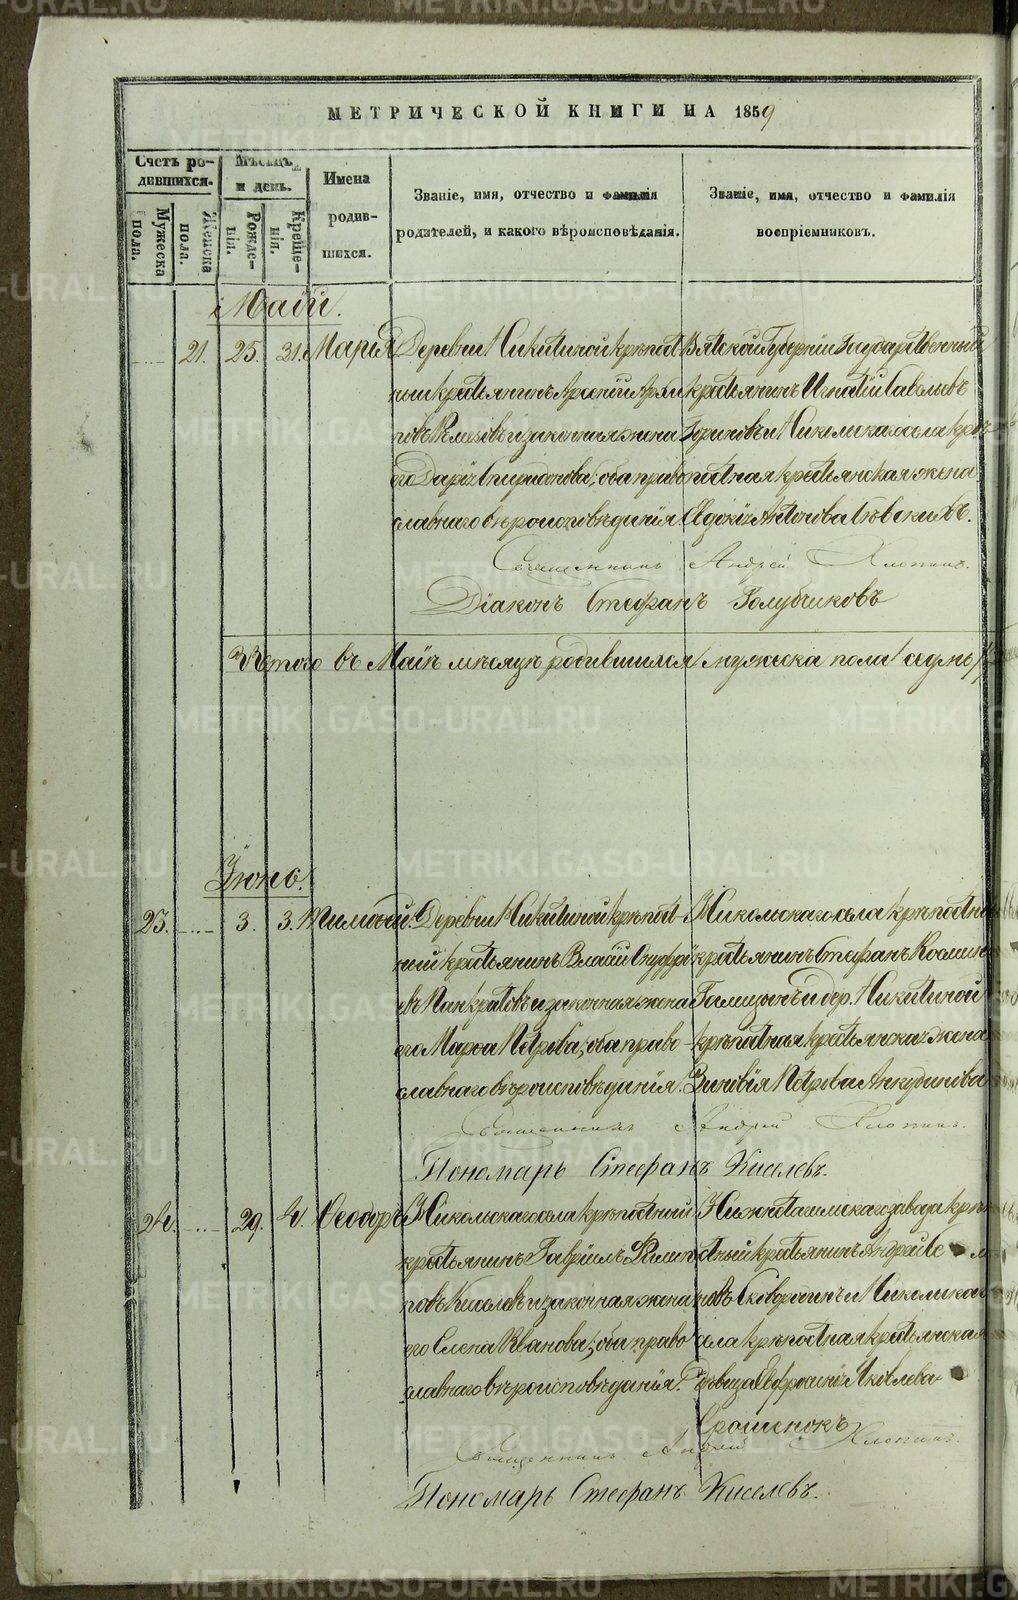 МЕТРИЧЕСКОЙ КНИГИ НА 1859
Счетъ ро-
дившихся.
Мужеска
пола.
Женска
пола.
Мѣсяцъ
и день.
Рожде-
нія.
Креще-
нія.
Имена
родив-
шихся.
Званіе, имя, отчество и фамилія
родителей, и какого вѣроисповѣданія.
Званіе, имя, отчество и фамилія
воспріемниковъ.
Маій.
21. 25. 31. Марія
Деревни Никитиной крѣпост
ный крестьянинъ Арсеній Архи
повъ и законная жена
его Дарія Спиридонова; оба право
славнаго вѣроисповѣданія
Вятской Губерніи Государственный
крестьянинъ Игнатій Савельевъ
и Никольскаго села крѣ
постная крестьянская жена
Евдокія Антонова
Священникъ Андрей Хлопинъ.
Діаконъ Стефанъ Голубчиковъ
Итого въ Маіѣ мѣсяцѣ родившихся мужеска пола седмь
Іюнь.
23. 3. 3. Тимофей.
Деревни Никитиной крѣпост
ный крестьянинъ Власій Онуфрі
евъ Панкратовъ и законная жена
его Марѳа Петрова; оба право
славнаго вѣроисповѣданія.
Никольскаго села крѣпостный
крестьянинъ Стефанъ Космин
Голицынъ и дер. Никитиной
крѣпостная крестьянская жена
Зиновія Петрова Анкудинова
Священникъ Андрей Хлопинъ.
Пономарь Стефанъ Киселевъ.
24. 29. 4. Ѳеодоръ
Никольскаго села крѣпостный
крестьянинъ Гавріилъ Филип
повъ Киселевъ и законная жена
его Елена Иванова; оба право
славнаго вѣроисповѣданія.
Нижнетагильскаго завода крѣп
остный крестьянинъ Андрей
новъ Сковородинъ и Никольскаго
села крѣпостная крестьянская
дѣвица Евфросинія Яковлева
Священникъ Андрей Хлопинъ.
Пономарь Стефанъ Киселевъ.
METRIKI.GASO-URAL.RU